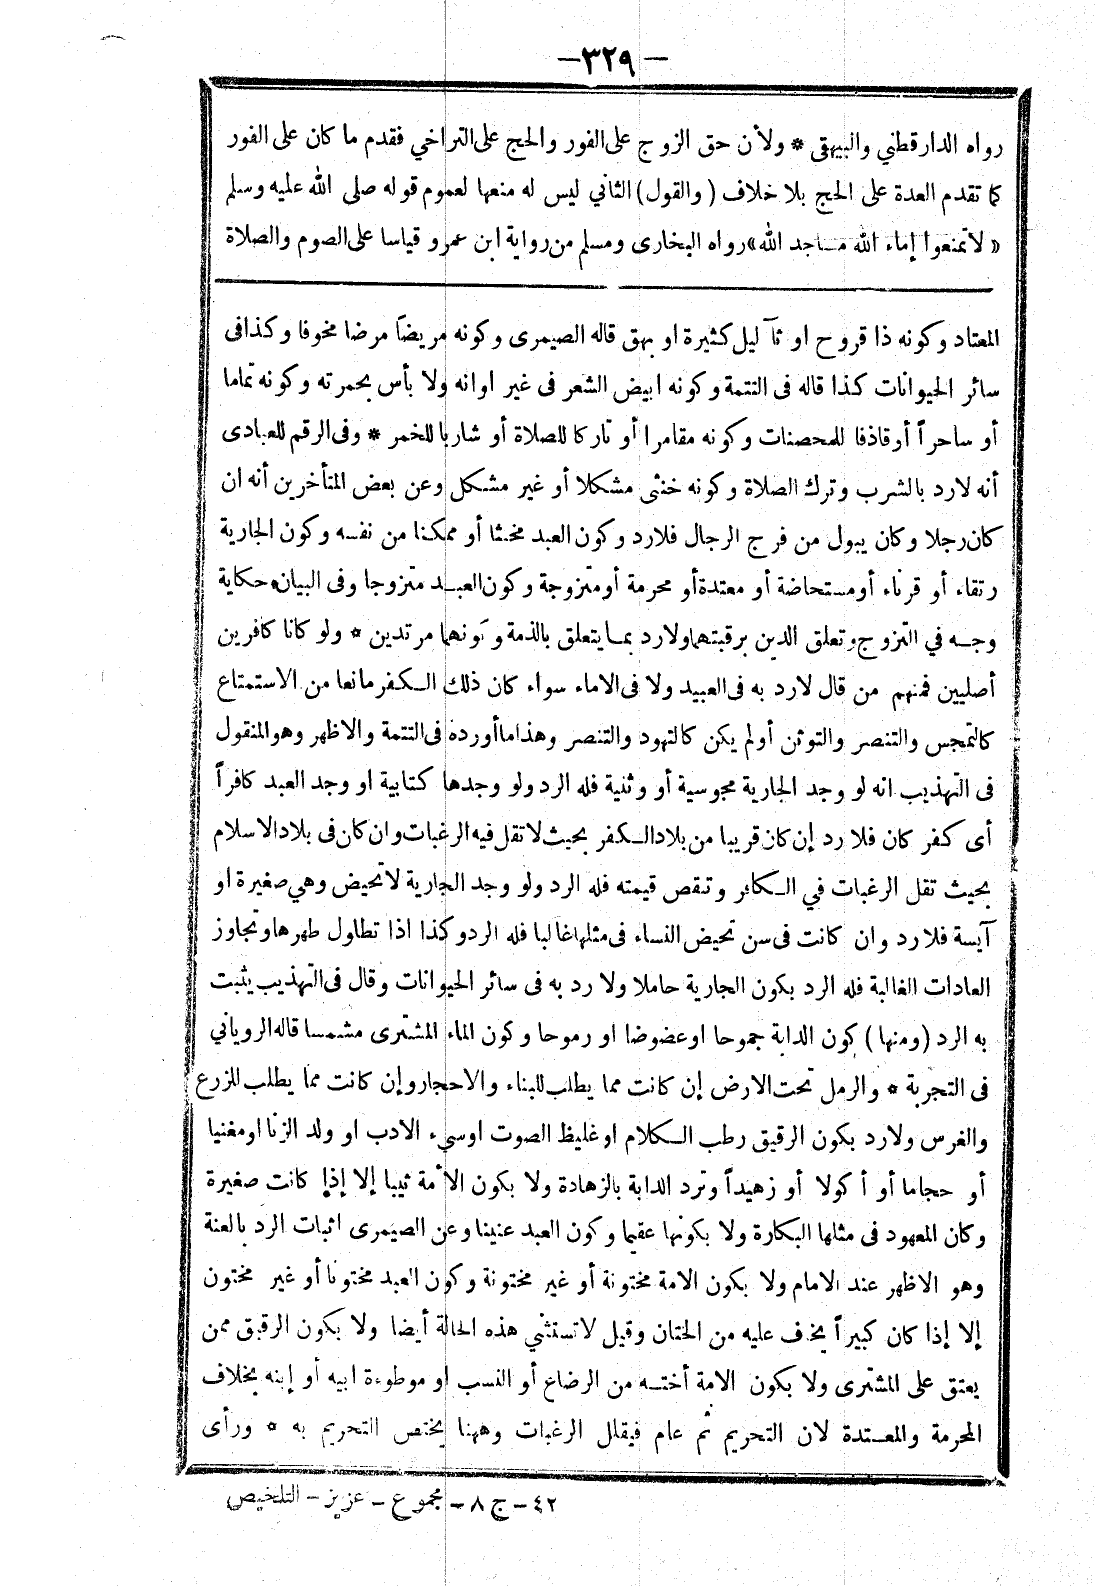 —٣٢٩—
رواه الدارقطني والبيهقى * ولأن حق الزوج على الفور والحج على التراخي فقدم ما كان على الفور
كما تقدم العدة على الحج بلا خلاف ( والقول ) الثاني ليس له منعها لعموم قوله صلى الله عليه وسلم
« لا تمنعوا إماء الله مساجد الله » رواه البخارى ومسلم من رواية ابن عمرو قياسا على الصوم والصلاة
المعتاد وكونه ذا قروح او ثآليل كثيرة او بهق قاله الصيمرى وكونه مريضاً مرضا مخوفا وكذا فى
سائر الحيوانات كذا قاله فى التتمة وكونه ابيض الشعر فى غير اوانه ولا بأس بحمرته وكونه تماما
أو ساحراً أو قاذفا للمحصنات وكونه مقامرا أو تاركا للصلاة أو شاربا للخمر * وفى الرقم للعبادى
أنه لا رد بالشرب وترك الصلاة وكونه خنثى مشكلا أو غير مشكل وعن بعض المتأخرين أنه ان
كان رجلا وكان يبول من فرج الرجال فلا رد وكون العبد مخنثا أو ممكنا من نفسه وكون الجارية
رتقاء أو قرناء أو مستحاضة أو معتدة أو محرمة أو متزوجة وكون العبد متزوجا وفى البيان حكاية
وجه في التزوج وتعلق الدين برقبتهما ولا رد بما يتعلق بالذمة وكونهما مرتدين * ولو كانا كافرين
أصليين فمنهم من قال لا رد به فى العبيد ولا فى الاماء سواء كان ذلك الكفر مانعا من الاستمتاع
كالتمجس والتنصر والتوثن أو لم يكن كالتهود والتنصر وهذا ما أورده فى التتمة والاظهر وهو المنقول
فى التهذيب انه لو وجد الجارية مجوسية أو وثنية فله الرد ولو وجدها كتابية او وجد العبد كافراً
أى كفر كان فلا رد إن كان قريبا من بلاد الكفر بحيث لا تقل فيه الرغبات وان كان فى بلاد الاسلام
بحيث تقل الرغبات في الكافر وتنقص قيمته فله الرد ولو وجد الجارية لا تحيض وهي صغيرة او
آيسة فلا رد وان كانت فى سن تحيض النساء فى مثلها غالبا فله الرد وكذا اذا تطاول طهرها وتجاوز
العادات الغالبة فله الرد بكون الجارية حاملا ولا رد به فى سائر الحيوانات وقال فى التهذيب يثبت
به الرد ( ومنها ) كون الدابة جموحا او عضوضا او رموحا وكون الماء المشترى مشمسا قاله الروياني
فى التجربة * والرمل تحت الارض إن كانت مما يطلب للبناء والاحجار وإن كانت مما يطلب للزرع
والغرس ولا رد بكون الرقيق رطب الكلام او غليظ الصوت او سيء الادب او ولد الزنا او مغنيا
أو حجاما أو أكولا أو زهيداً وترد الدابة بالزهادة ولا بكون الأمة ثيبا إلا إذا كانت صغيرة
وكان المعهود فى مثلها البكارة ولا بكونها عقيما وكون العبد عنينا وعن الصيمرى اثبات الرد بالعنة
وهو الاظهر عند الامام ولا بكون الامة مختونة أو غير مختونة وكون العبد مختونا أو غير مختون
إلا إذا كان كبيراً يخاف عليه من الختان وقيل لا تستثنى هذه الحالة أيضا ولا بكون الرقيق ممن
يعتق على المشترى ولا بكون الامة أخته من الرضاع أو النسب او موطوءة ابيه أو إبنه بخلاف
المحرمة والمعتدة لان التحريم ثم عام فيقال الرغبات وههنا يختص التحريم به * ورأى
٤٢ – ج ٨ – مجموع – عزيز – التلخيص